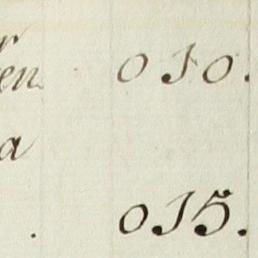 en 010.
a
. 015.